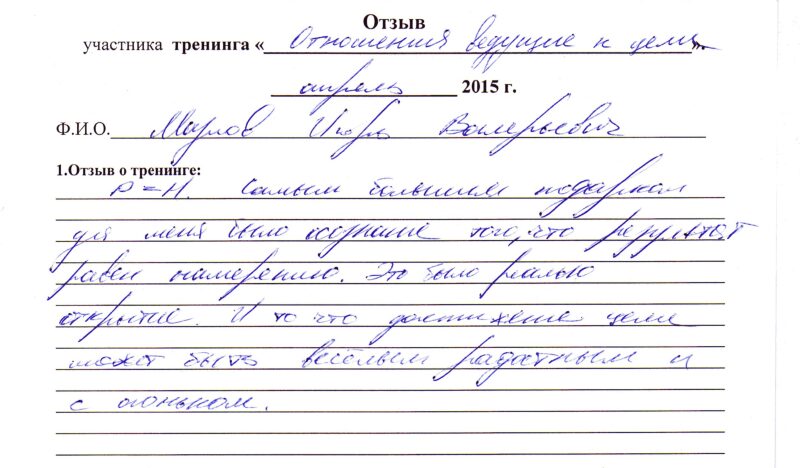 Отзыв
участника тренинга « Отношения ведущие к цели
апрель 2015 г.
Ф.И.О. Игорь Валерьевич
1.Отзыв о тренинге:
Р = Н. Самым большим подарком
для меня было осознание того, что результат
равен намерению. Это было реально
открытие. И то что достижение цели
может быть весёлым радостным и
с огоньком.